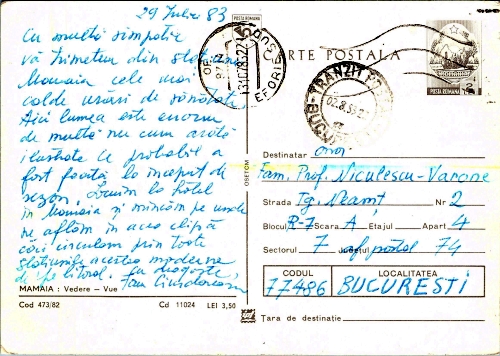 29 Iulie 83
Cu multă simpatie
vă trimetem din stațiunea
Mamaia cele mai
calde urări de sănătate.
Aici lumea este enorm
de multă nu cum arată
ilustrata ce probabil a
fost făcută la început de
sezon. Locuim la hotel
în Mamaia și mîncăm pe unde
ne aflăm în acea clipă
căci circulăm prin toate
stațiunile acestea moderne
de pe litoral. Cu dragoste,
Fam
MAMAIA : Vedere – Vue
Cod 473/82 Cd 11024 LEI 3,50
OBETOM
POSTA ROMANA
EFORIE SUD
CARTE POSTALA
TRANZIT
BUCUR
02.8.83
POSTA ROMANA
Destinatar Onor
Fam. Prof. Niculescu-Varone
Strada Tg. Neamț Nr 2
Blocul R-7 Scara A, Etajul Apart 4
Sectorul 7 Județul of. postal 74
CODUL LOCALITATEA
77486 BUCUREȘTI
Țara de destinație